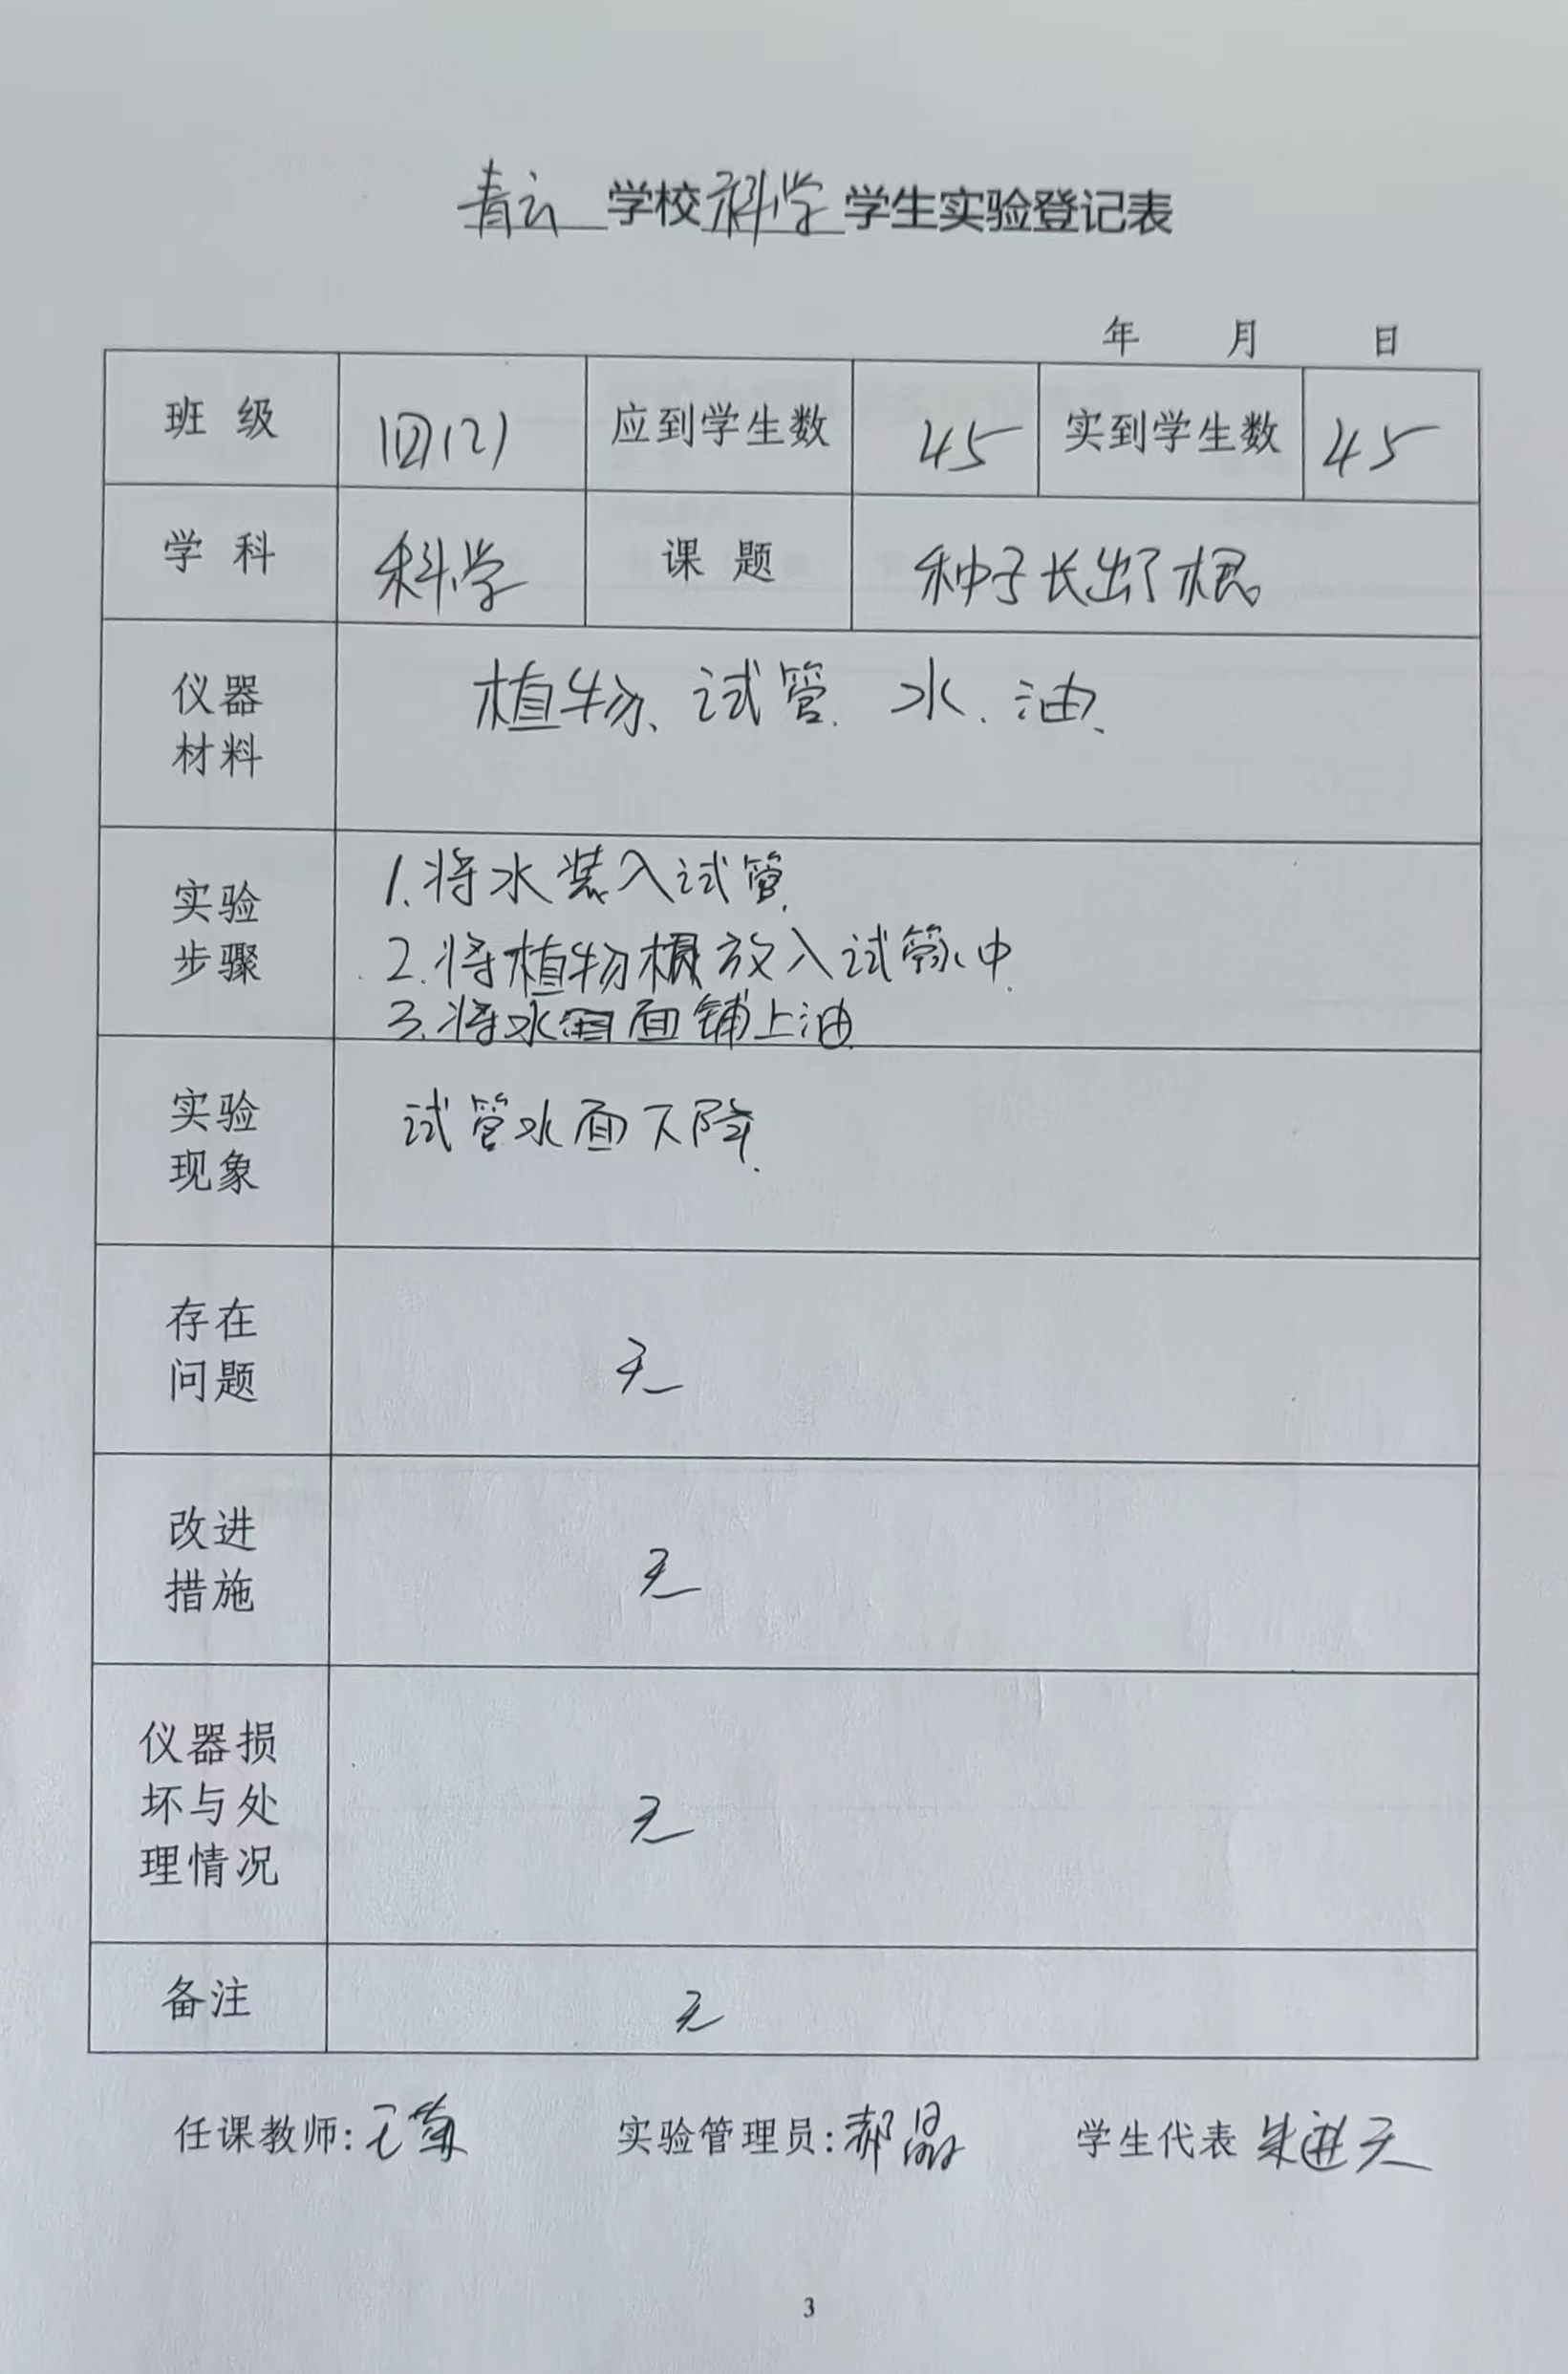 青云 学校 科学 学生实验登记表
年 月 日
班 级 四(2) 应到学生数 45 实到学生数 45
学 科 科学 课 题 种子长出了根
仪器
材料
植物、试管、水、油、
实验
步骤
1.将水装入试管.
2.将植物根放入试管中.
3.将水面铺上油.
实验
现象
试管水面下降.
存在
问题
无
改进
措施
无
仪器损
坏与处
理情况
无
备注
无
任课教师: 实验管理员:郝晶 学生代表 朱进天
3